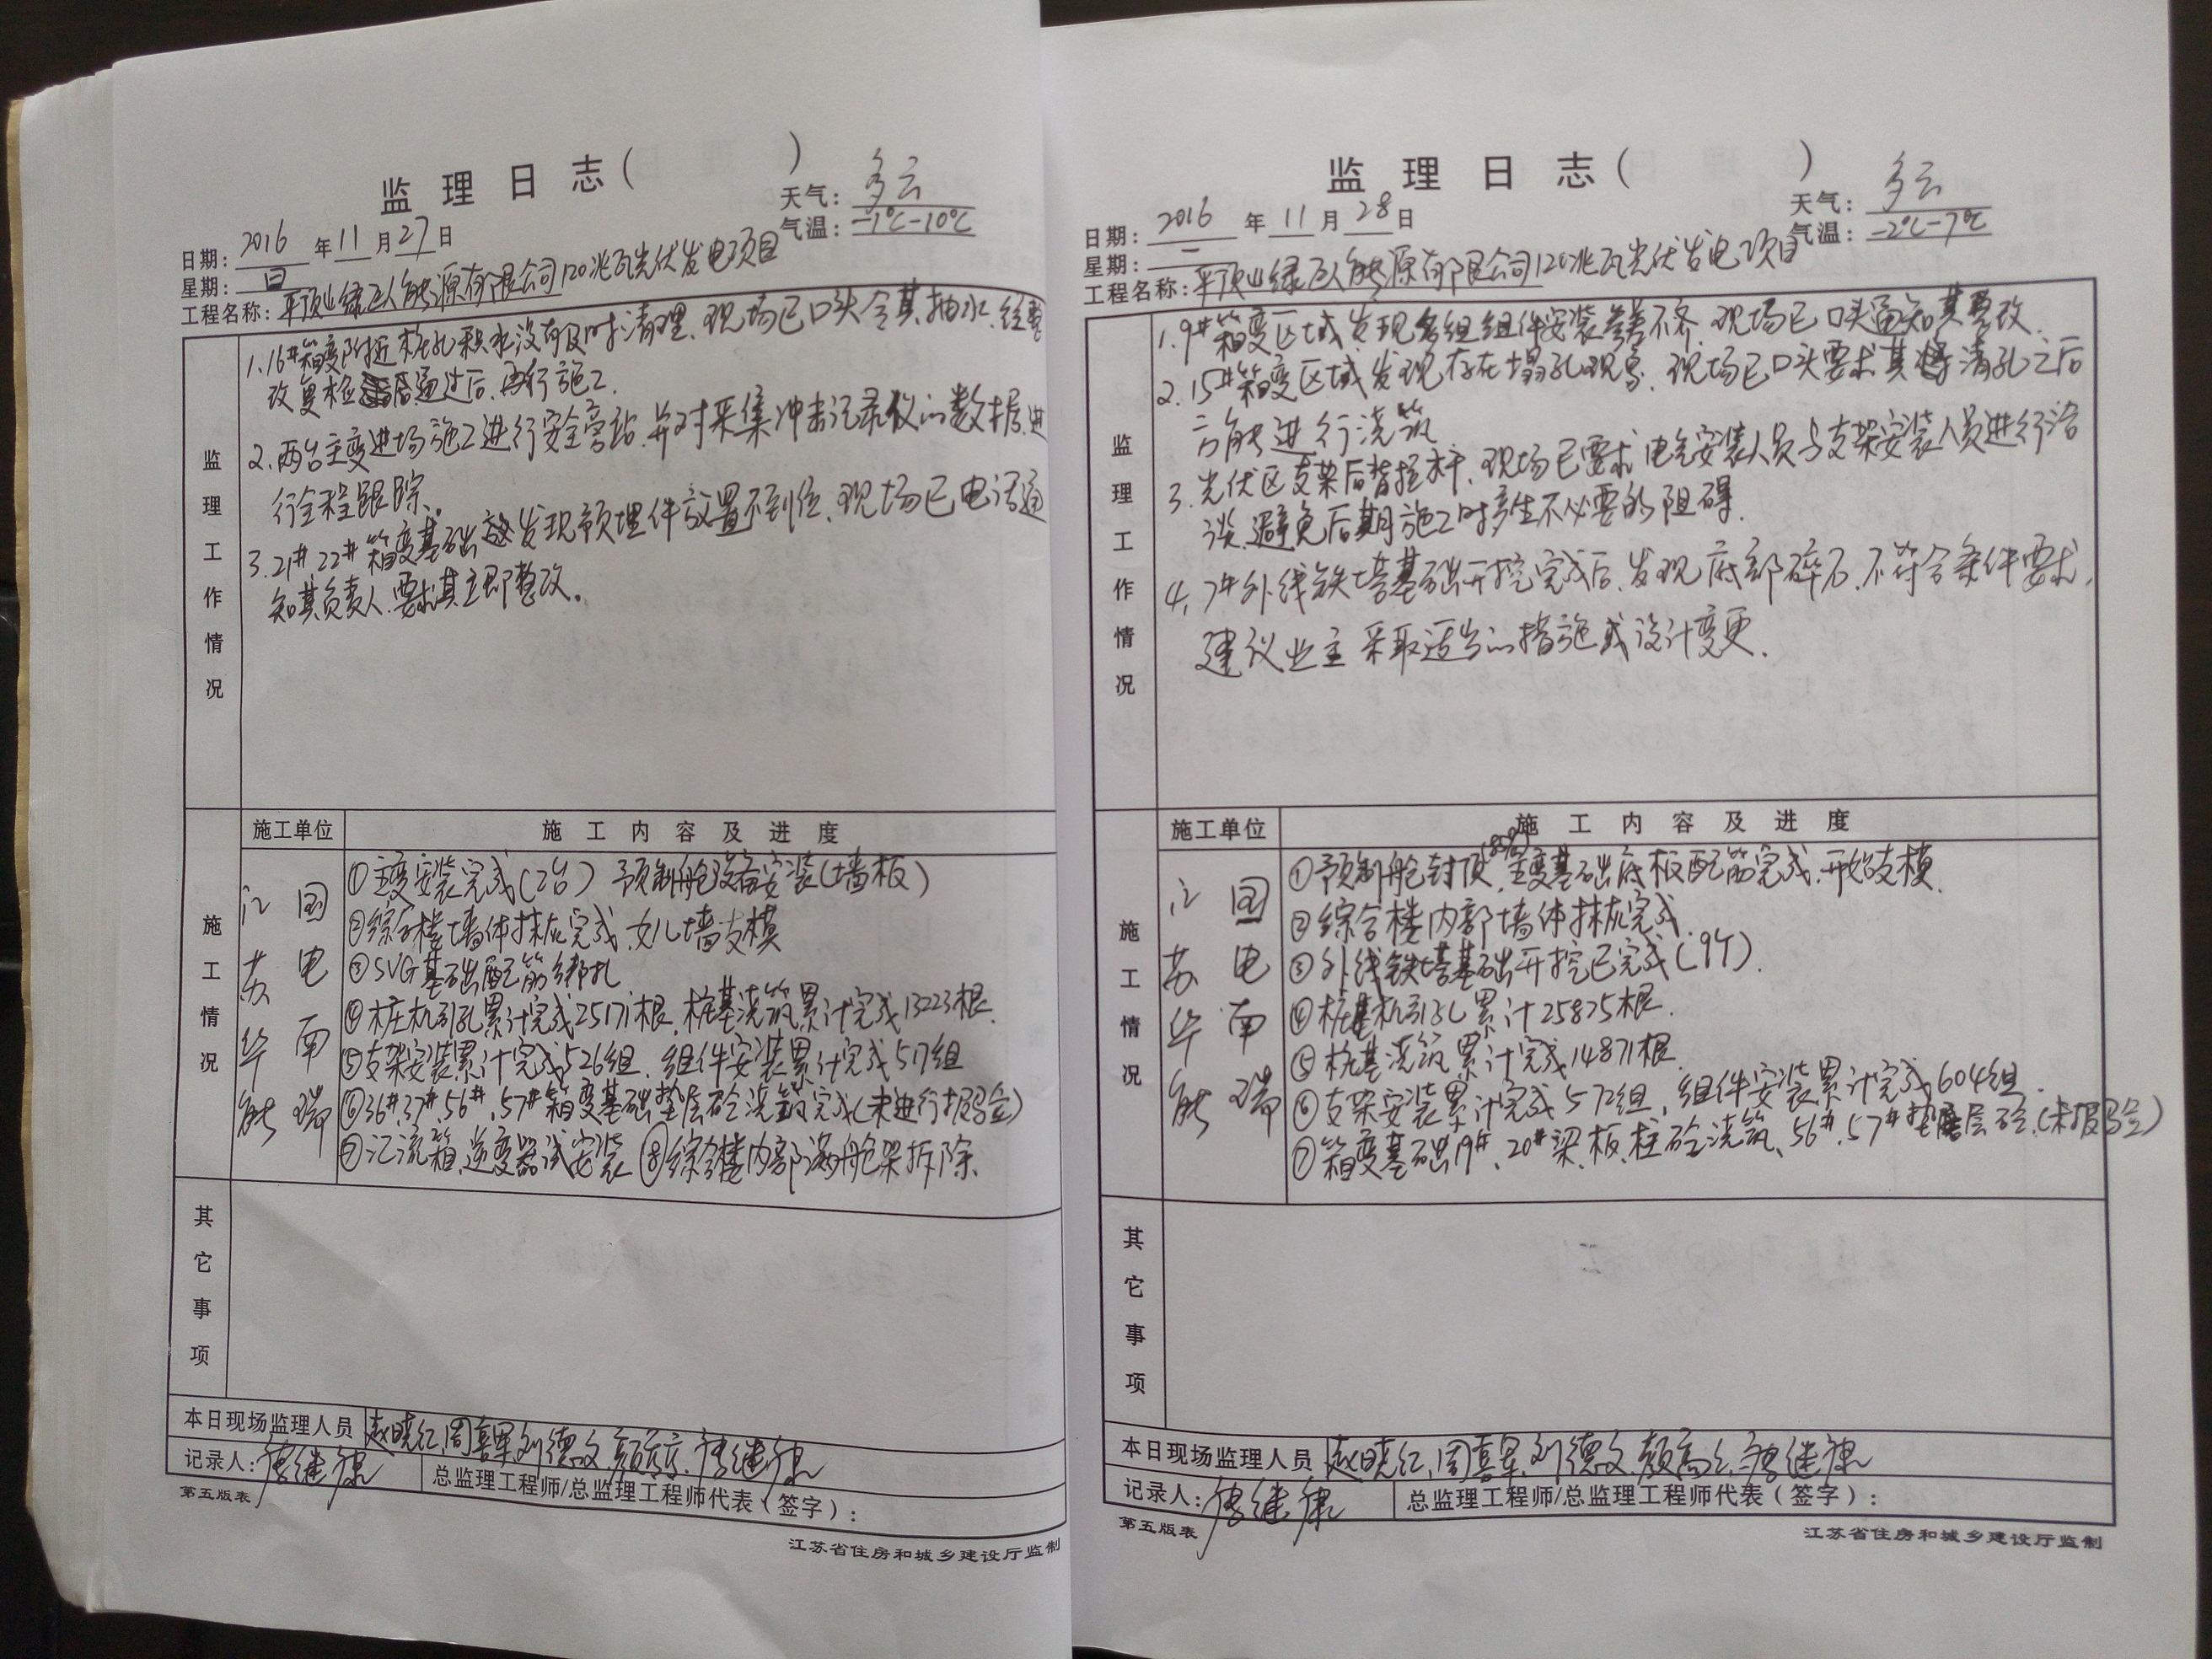 监 理 日 志（ ）
天气：多云
日期：2016 年 11 月 27 日
气温：-1℃-10℃
星期：日
工程名称：平顶山绿巨人能源有限公司120兆瓦光伏发电项目
监理工作情况
1.16#箱变附近桩孔积水没有及时清理、现场已口头令其抽水、经整
改复检通过后、再行施工.
2.两台主变进场施工进行安全旁站、并对采集冲击记录仪的数据进
行全程跟踪。
3.21#、22#箱变基础发现预埋件放置不到位、现场已电话通
知其负责人、要求其立即整改。
施工单位 施工内容及进度
施工情况
江苏华能
国电南瑞
①主变安装完成(2台) 预制舱设备安装(墙板)
②综合楼墙体抹灰完成、女儿墙支模
③SVG基础配筋绑扎
④桩机引孔累计完成25171根、桩基浇筑累计完成13223根.
⑤支架安装累计完成526组、组件安装累计完成517组
⑥36#、37#、56#、57#箱变基础垫层砼浇筑完成(未进行报验)
⑦汇流箱、逆变器试安装 ⑧综合楼内部满舱架拆除.
其它事项
本日现场监理人员 赵晓红、周喜军、刘德文、唐继康
记录人：唐继康 总监理工程师/总监理工程师代表（签字）：
第五版表
江苏省住房和城乡建设厅监制
监 理 日 志（ ）
天气：多云
日期：2016 年 11 月 28 日
气温：-2℃-7℃
星期：一
工程名称：平顶山绿巨人能源有限公司120兆瓦光伏发电项目
监理工作情况
1.9#箱变区域发现多组组件安装参差不齐、现场已口头通知其整改.
2.15#箱变区域发现存在塌孔现象、现场已口头要求其清孔之后
方能进行浇筑
3.光伏区支架后背拉杆、现场已要求电气安装人员与支架安装人员进行洽
谈、避免后期施工时产生不必要的阻碍.
4.7#外线铁塔基础开挖完成后、发现底部碎石、不符合条件要求,
建议业主采取适当的措施或设计变更.
施工单位 施工内容及进度
施工情况
江苏华能
国电南瑞
①预制舱封顶、主变基础底板配筋完成、开始支模.
②综合楼内部墙体抹灰完成.
③外线铁塔基础开挖已完成(9个).
④桩基机引孔累计25875根.
⑤桩基浇筑累计完成14871根.
⑥支架安装累计完成572组、组件安装累计完成604组.
⑦箱变基础19#、20#梁、板、柱砼浇筑、56#、57#垫层砼.(未报验)
其它事项
本日现场监理人员 赵晓红、周喜军、刘德文、唐继康
记录人：唐继康 总监理工程师/总监理工程师代表（签字）：
第五版表
江苏省住房和城乡建设厅监制